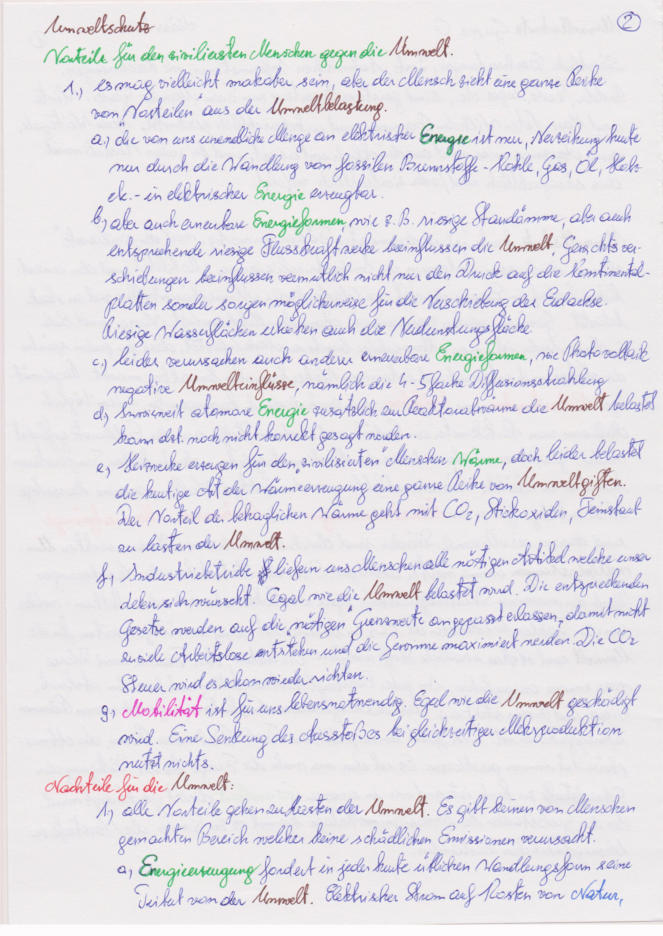 Umweltschutz
2
Vorteile für den zivilisierten Menschen gegen die Umwelt.
1.) es mag vielleicht makaber sein, aber der Mensch zieht eine ganze Reihe
von "Vorteilen" aus der Umweltbelastung.
a.) die von uns unendliche Menge an elektrischer Energie ist nur,
nur durch die Wandlung von fossilen Brennstoffe - Kohle, Gas, Öl, Holz
etc. - in elektrischer Energie erzeugbar.
b.) aber auch erneubare Energieformen, wie z.B. riesige Staudämme, aber auch
entsprechende riesige Flusskraftwerke beeinflussen die Umwelt. Gewichtsver-
schiebungen beinflussen vermutlich nicht nur den Druck auf die Kontinental-
platten sonder sorgen möglicherweise für die Verschiebung der Erdachse.
Riesige Wasserflächen erhöhen auch die Verdunstungsfläche
c.) leider verursachen auch andere erneuerbare Energieformen, wie Photovoltaik
negative Umwelteinflüsse, nämlich die 4-5fache Diffusionsstrahlung
d.) Inwieweit atomare Energie zusätzlich zur Reaktorabwärme die Umwelt belastet
kann dzt. noch nicht korrekt gesagt werden.
e.) Heizwerke erzeugen für den "zivilisierten" Menschen Wärme, doch leider belastet
die heutige Art der Wärmeerzeugung eine ganze Reihe von Umweltgiften.
Der Vorteil der behaglichen Wärme geht mit CO2, Stickoxiden, Feinstaub
zu lasten der Umwelt.
f.) Industriebetriebe liefern uns Menschen alle nötigen Artikel welche unser
sich wünscht. Egal wie die Umwelt belastet wird. Die entsprechenden
Gesetze werden auf die "nötigen" Grenzwerte angepasst erlassen, damit nicht
zuviele Arbeitslose entstehen und die Gewinne maximiert werden. Die CO2
Steuer wird es schon wieder richten.
g.) Mobilität ist für uns lebensnotwendig. Egal wie die Umwelt geschädigt
wird. Eine Senkung des Ausstoßes bei gleichzeitiger Mehrproduktion
nutzt nichts.
Nachteile für die Umwelt:
1.) alle Vorteile gehen zu Lasten der Umwelt. Es gibt keinen von Menschen
gemachten Bereich welcher keine schädlichen Emissionen verursacht.
a.) Energieerzeugung fordert in jeder heute üblichen Wandlungsform seine
Tribut von der Umwelt. Elektrischer Strom auf Kosten von Natur,